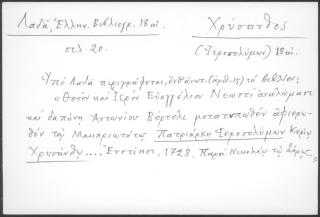 Λαδᾶ, Ἑλλην. Βιβλιογρ. 18 αἰ.
Χρύσανθος
σελ. 20.
(Ἱεροσολύμων) 18 αἰ.
Ὑπὸ Λαδᾶ περιγράφεται, (ἀρθ. 15) τὸ βιβλίον:
«Θεῖον καὶ Ἱερὸν Εὐαγγέλιον Νεωστὶ ἀναλώμασι
καὶ δαπάνῃ Ἀντωνίου Βόρτολι μετατυπωθὲν ἀφιερω-
θὲν τῷ Μακαριωτάτῳ Πατριάρχῃ Ἱεροσολύμων Κυρίῳ
Χρυσάνθῳ.... Ἐνετίησι, 1728. Παρὰ Νικολάῳ τῷ Σάρῳ...»